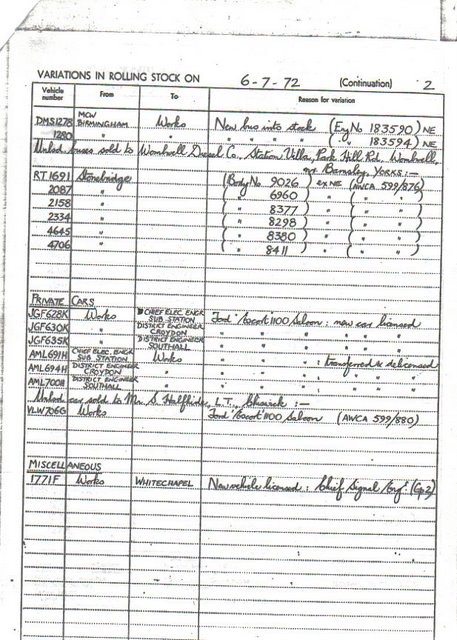 VARIATIONS IN ROLLING STOCK ON 6-7-72 (Continuation) 2
Vehicle number From To Reason for variation
DMS1278 MCW BIRMINGHAM Works New bus into stock (Eng No 183590) NE
1280 " " " " " " ( " " 183594) NE
Unlicd buses sold to Wombwell Diesel Co., Station Villas, Park Hill Rd, Wombwell,
nr Barnsley, YORKS:-
RT1691 Stonebridge (Body No 9026) ex NE (AWCA 599/876)
2087 " ( " 6960 ) " ( " " )
2158 " ( " 8377 ) " ( " " )
2334 " ( " 8298 ) " ( " " )
4645 " ( " 8380 ) " ( " " )
4706 " ( " 8411 ) " ( " " )
PRIVATE CARS
JGF628K Works CHIEF ELEC. ENGR SUB STATION Ford 'Escort' 1100 Saloon : new car licensed
JGF630K " DISTRICT ENGINEER CROYDON " " " " " " "
JGF635K " DISTRICT ENGINEER SOUTHALL " " " " " " "
AML691H CHIEF ELEC. ENGR SUB. STATION Works " " " " : transferred & delicensed
AML694H DISTRICT ENGINEER CROYDON " " " " " " " "
AML700H DISTRICT ENGINEER SOUTHALL " " " " " " " "
Unlicd car sold to Mr. S. L.T., Chiswick :-
VLW706G Works Ford 'Escort' 1100 Saloon (AWCA 599/880)
MISCELLANEOUS
1771F Works WHITECHAPEL New vehicle licensed : Chief Signal Engr (Gp2)